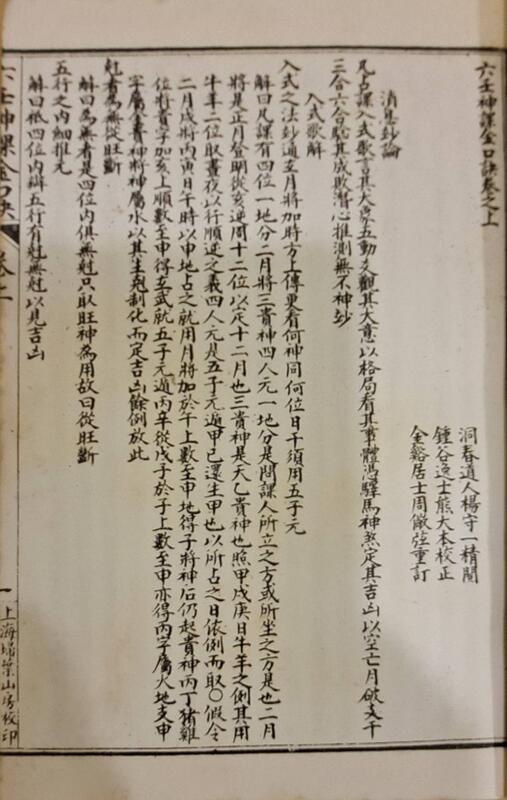 六壬神課金口訣卷之上
洞春道人楊守一精閱
鍾谷逸士熊大本校正
金谿居士周儆弦重訂
消息玅論
凡占課入式歌言其大槩五動爻觀其大意以格局看其事體憑驛馬神煞定其吉凶以空亡月破支干
三合六合驗其成敗潛心推測無不神玅
入式歌解
入式之法玅通玄月將加時方上傳更看何神同何位日干須用五子元
解曰凡課有四位一地分二月將三貴神四人元一地分是問課人所立之方或所坐之方是也二月
將是正月登明從亥逆周十二位以定十二月也三貴神是天乙貴神也照甲戊庚日牛羊之例其用
牛羊二位取晝夜以行順逆之義四人元是五子元遁甲己還生甲也以所占之日依例而取〇假令
二月戌將丙寅日午時以申地占之就用月將加於午上順數至申地得子將神后仍起貴神丙丁猪雞
位將貴字加亥上順數至申得玄武就五子元遁丙辛從戊子於子上數至申亦得丙字屬火地支申
字屬金貴神將神屬水以其生尅制化而定吉凶餘例放此
尅者為無從旺斷
解曰為無者是四位內俱無尅只取旺神為用故曰從旺斷
五行之內細推元
解曰袛四位內辦五行有尅無尅以見吉凶
六壬神課金口訣
卷上
一
上海埽葉山房校印